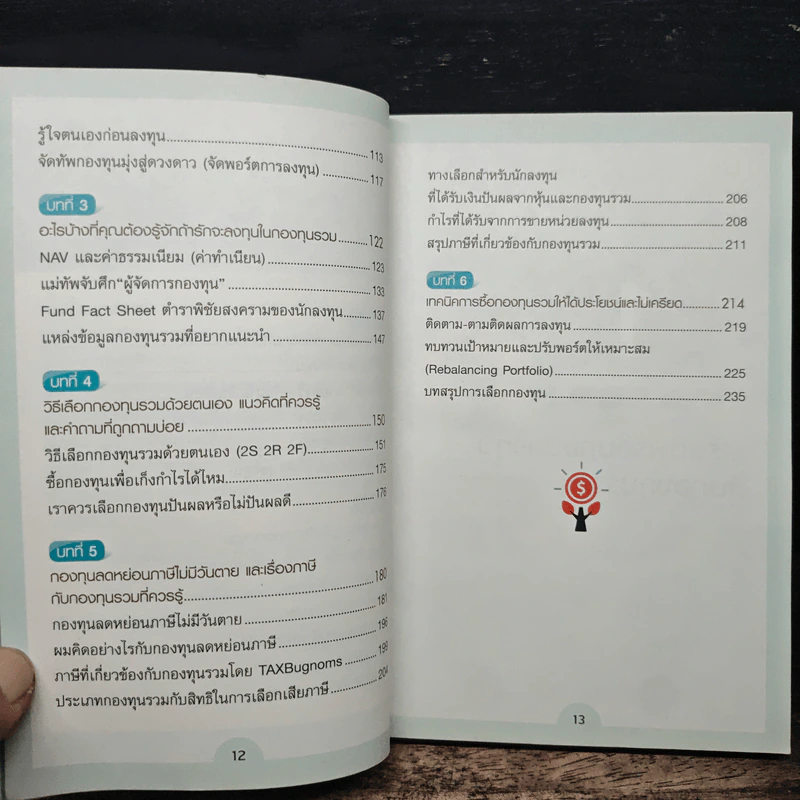 รู้ใจตนเองก่อนลงทุน........................................113
จัดทัพกองทุนมุ่งสู่ดวงดาว (จัดพอร์ตการลงทุน)..........117
บทที่ 3
อะไรบ้างที่คุณต้องรู้จักถ้ารักจะลงทุนในกองทุนรวม........122
NAV และค่าธรรมเนียม (ค่าทำเนียน)........................129
แม่ทัพจับศึก"ผู้จัดการกองทุน"..............................133
Fund Fact Sheet ตำราพิชัยสงครามของนักลงทุน.......137
แหล่งข้อมูลกองทุนรวมที่อยากแนะนำ......................147
บทที่ 4
วิธีเลือกกองทุนรวมด้วยตนเอง แนวคิดที่ควรรู้
และคำถามที่ถูกถามบ่อย........................................150
วิธีเลือกกองทุนรวมด้วยตนเอง (2S 2R 2F)...............151
ซื้อกองทุนเพื่อเก็งกำไรได้ไหม...............................175
เราควรเลือกกองทุนปันผลหรือไม่ปันผลดี..................176
บทที่ 5
กองทุนลดหย่อนภาษีไม่มีวันตาย และเรื่องภาษี
กับกองทุนรวมที่ควรรู้..........................................180
กองทุนลดหย่อนภาษีไม่มีวันตาย............................181
ผมคิดอย่างไรกับกองทุนลดหย่อนภาษี......................198
ภาษีที่เกี่ยวข้องกับกองทุนรวมโดย TAXBugnoms.......199
ประเภทกองทุนรวมกับสิทธิในการเลือกเสียภาษี...........204
12
ทางเลือกสำหรับนักลงทุน
ที่ได้รับเงินปันผลจากหุ้นและกองทุนรวม....................206
กำไรที่ได้รับจากการขายหน่วยลงทุน........................208
สรุปภาษีที่เกี่ยวข้องกับกองทุนรวม...........................211
บทที่ 6
เทคนิคการซื้อกองทุนรวมให้ได้ประโยชน์และไม่เครียด.......214
ติดตาม-ตามติดผลการลงทุน..................................219
ทบทวนเป้าหมายและปรับพอร์ตให้เหมาะสม
(Rebalancing Portfolio).....................................225
บทสรุปการเลือกกองทุน.......................................235
13